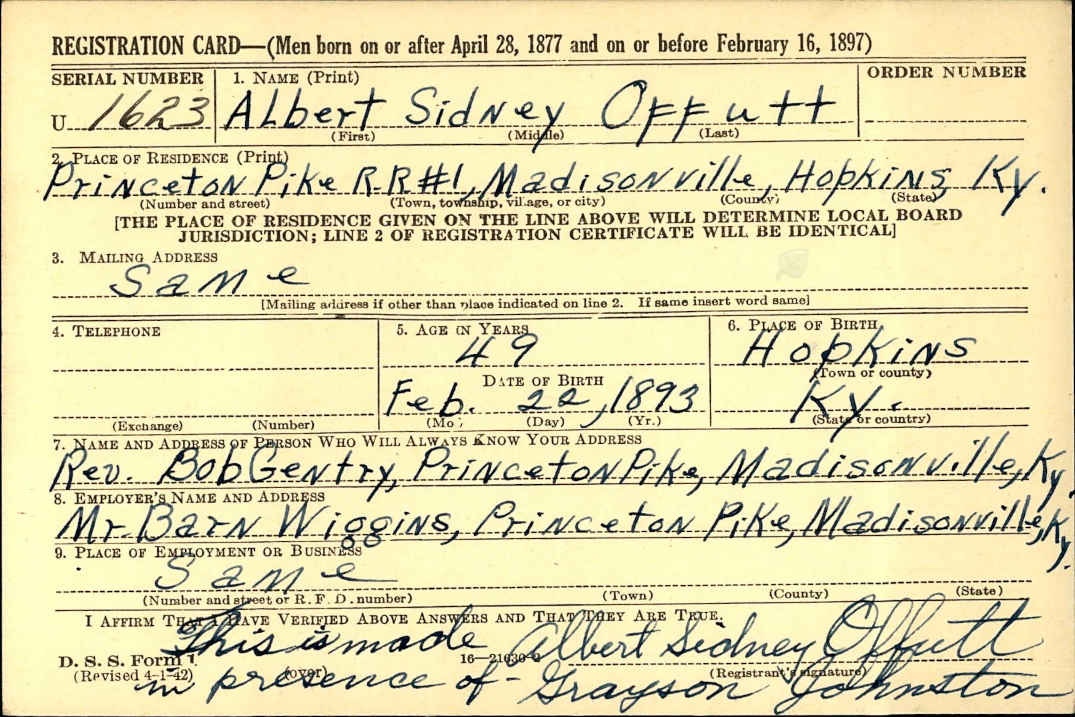 REGISTRATION CARD—(Men born on or after April 28, 1877 and on or before February 16, 1897)
SERIAL NUMBER 1. NAME (Print) ORDER NUMBER
U 1623 Albert Sidney Offutt
(First) (Middle) (Last)
2. PLACE OF RESIDENCE (Print)
Princeton Pike RR#1, Madisonville, Hopkins, Ky.
(Number and street) (Town, township, village, or city) (County) (State)
[THE PLACE OF RESIDENCE GIVEN ON THE LINE ABOVE WILL DETERMINE LOCAL BOARD
JURISDICTION; LINE 2 OF REGISTRATION CERTIFICATE WILL BE IDENTICAL]
3. MAILING ADDRESS
Same
[Mailing address if other than place indicated on line 2. If same insert word same]
4. TELEPHONE 5. AGE IN YEARS 6. PLACE OF BIRTH
49 Hopkins
(Town or county)
DATE OF BIRTH
Feb. 22, 1893 Ky.
(Exchange) (Number) (Mo.) (Day) (Yr.) (State or country)
7. NAME AND ADDRESS OF PERSON WHO WILL ALWAYS KNOW YOUR ADDRESS
Rev. Bob Gentry, Princeton Pike, Madisonville, Ky.
8. EMPLOYER'S NAME AND ADDRESS
Mr. Barn Wiggins, Princeton Pike, Madisonville, Ky.
9. PLACE OF EMPLOYMENT OR BUSINESS
Same
(Number and street or R. F. D. number) (Town) (County) (State)
I AFFIRM THAT I HAVE VERIFIED ABOVE ANSWERS AND THAT THEY ARE TRUE.
This is made Albert Sidney Offutt
D. S. S. Form 1 (over) 16—21630-2 (Registrant's signature)
(Revised 4-1-42)
in presence of - Grayson Johnston